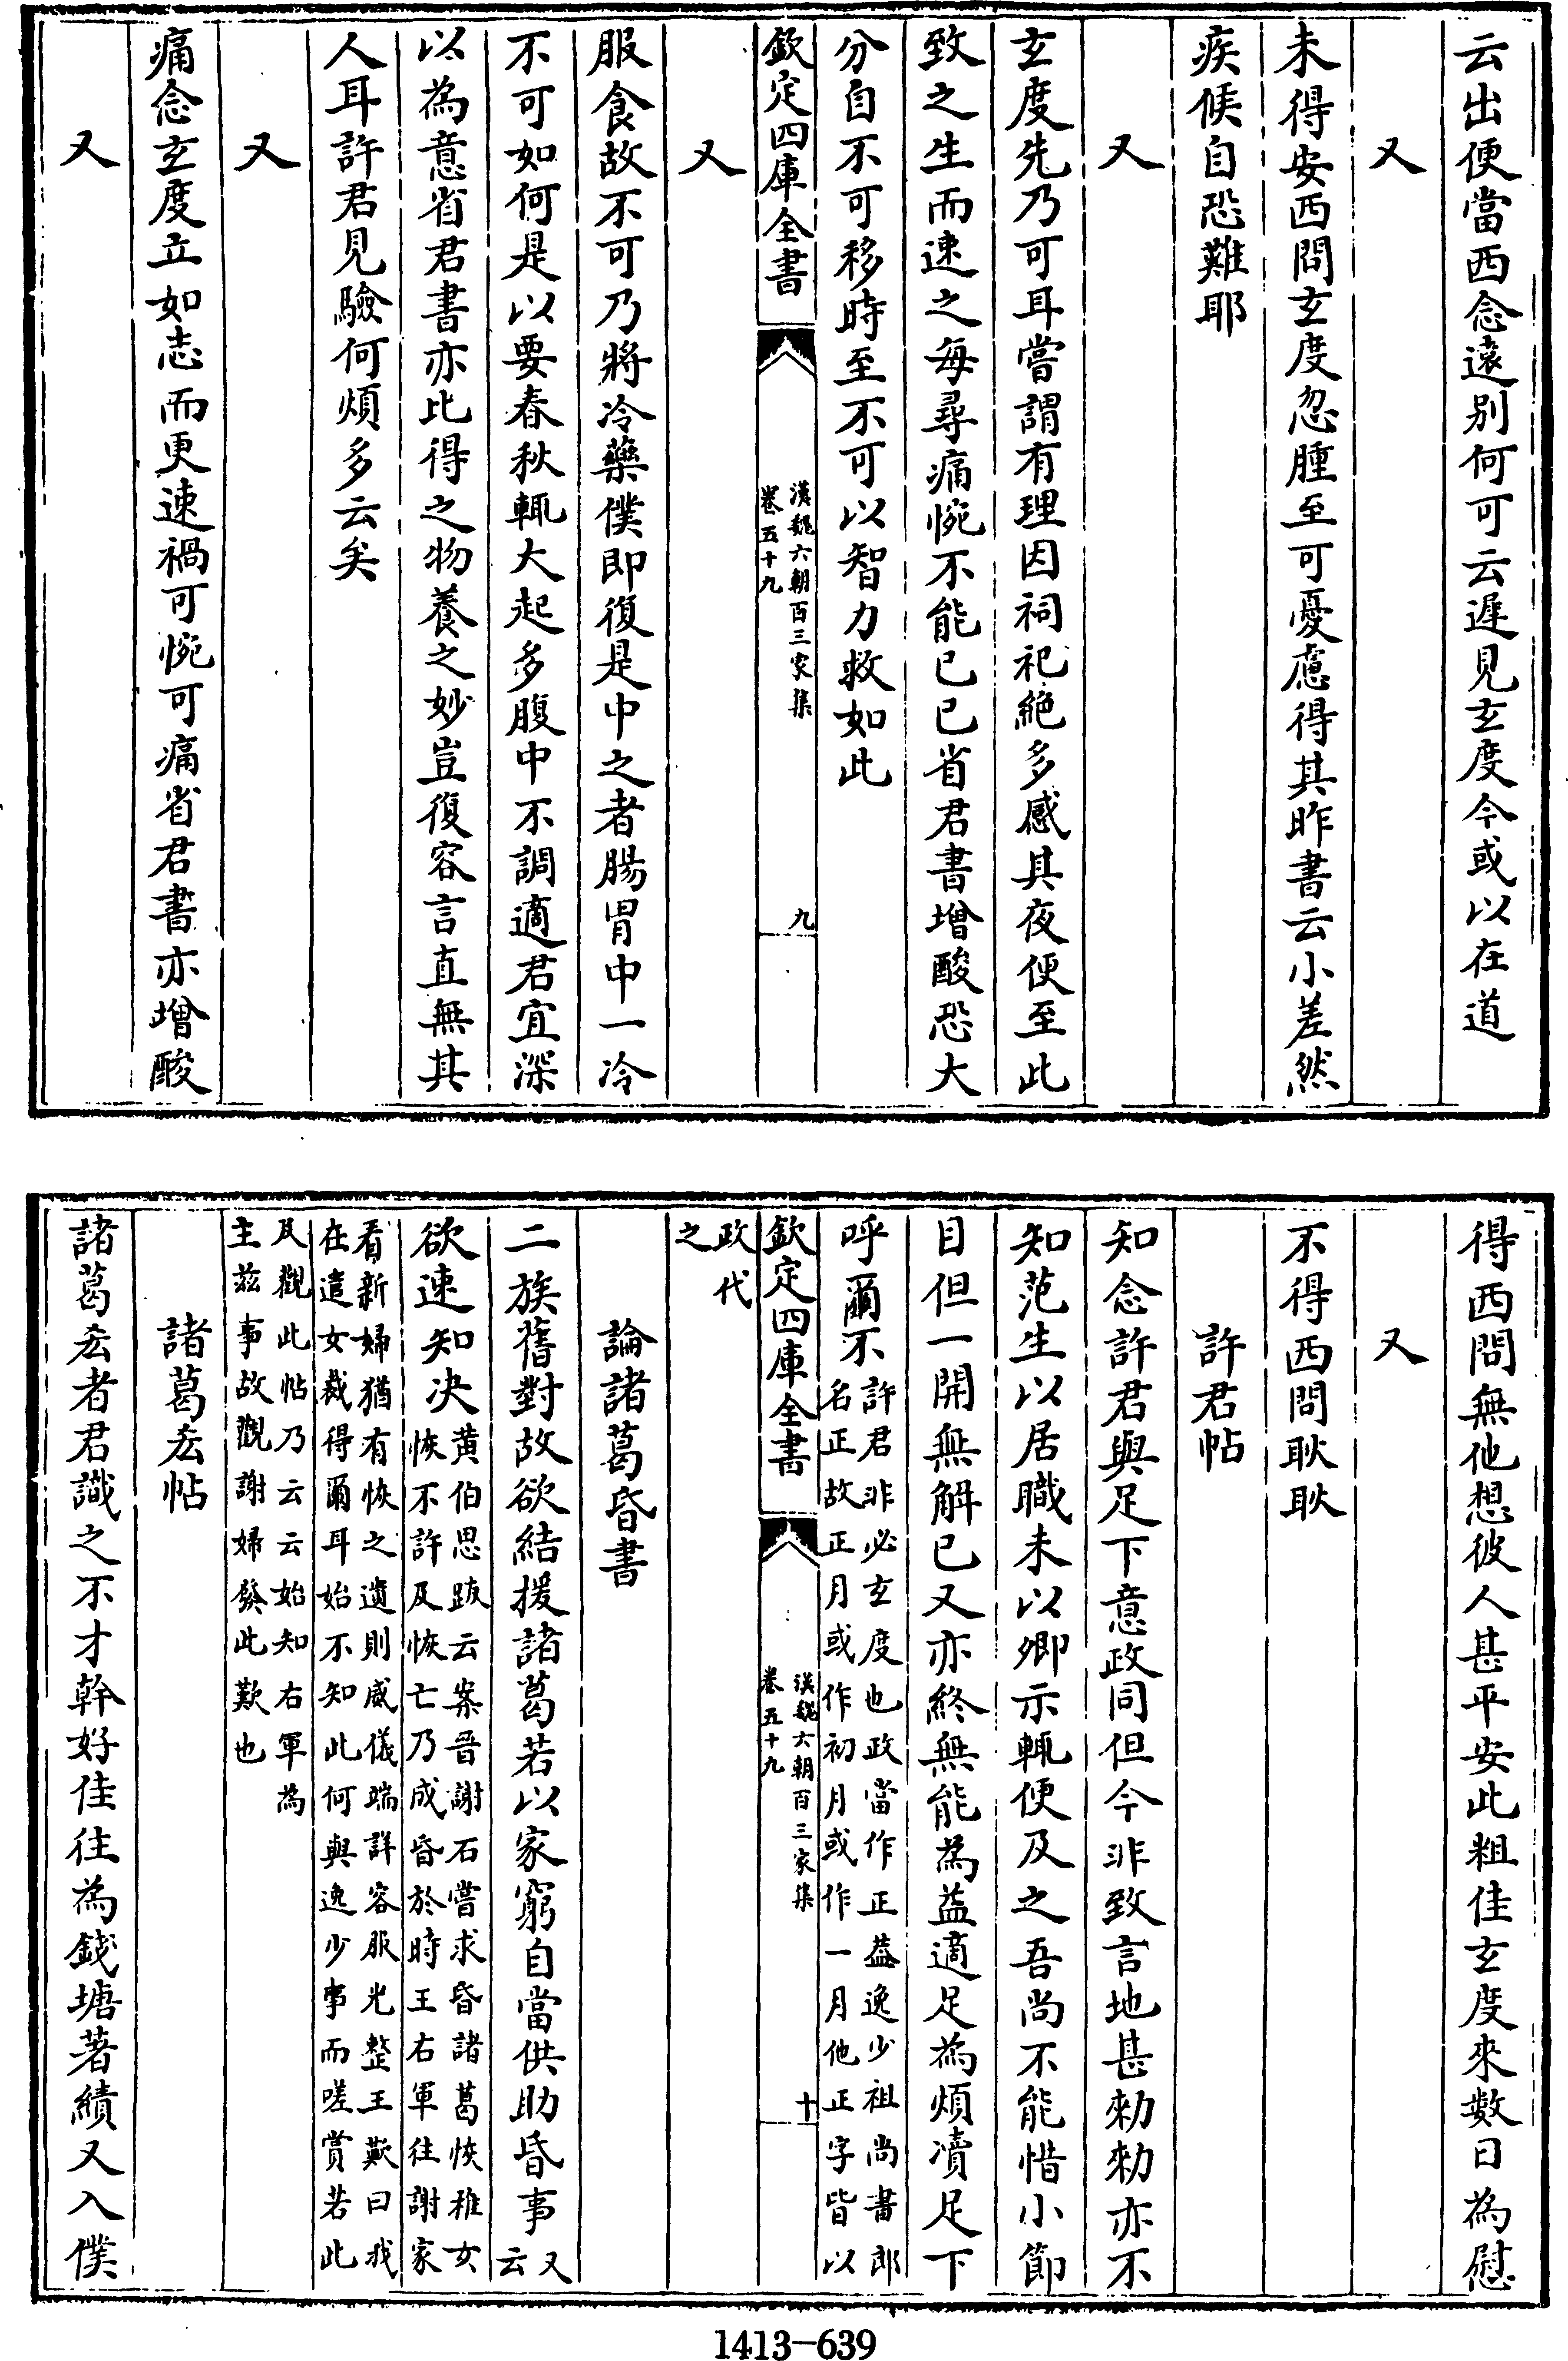 云出便當西念遠別何可云遲見玄度今或以在道
又
未得安西問玄度忽腫至可憂慮得其昨書云小差然
疾候自恐難耶
又
玄度先乃可耳嘗謂有理因祠祀絶多感其夜便至此
致之生而速之每尋痛惋不能已已省君書增酸恐大
分自不可移時至不可以智力救如此
欽定四庫全書
漢魏六朝百三家集
卷五十九
九
又
服食故不可乃將冷藥僕即復是中之者腸胃中一冷
不可如何是以要春秋輒大起多腹中不調適君宜深
以為意省君書亦比得之物養之妙豈復容言直無其
人耳許君見驗何煩多云矣
又
痛念玄度立如志而更速禍可惋可痛省君書亦增酸
又
得西問無他想彼人甚平安此粗佳玄度來數日為慰
又
不得西問耿耿
許君帖
知念許君與足下意政同但今非致言地甚勑勑亦不
知范生以居職未以卿示輒便及之吾尚不能惜小節
目但一開無解已又亦終無能為益適足為煩瀆足下
呼爾不
許君非必玄度也政當作正葢逸少祖尚書郎
名正故正月或作初月或作一月他正字皆以
欽定四庫全書
漢魏六朝百三家集
卷五十九
十
政代
之
論諸葛昏書
二族舊對故欲結援諸葛若以家窮自當供助昏事
又
云
欲速知决
黄伯思跋云案晉謝石嘗求昏諸葛恢稚女
恢不許及恢亡乃成昏於時王右軍往謝家
看新婦猶有恢之遺則威儀端詳容服光整王歎曰我
在遣女裁得爾耳始不知此何與逸少事而嗟賞若此
及觀此帖乃云云始知右軍為
主兹事故觀謝婦發此歎也
諸葛厷帖
諸葛厷者君識之不才幹好佳往為錢塘著績又入僕
1413-639